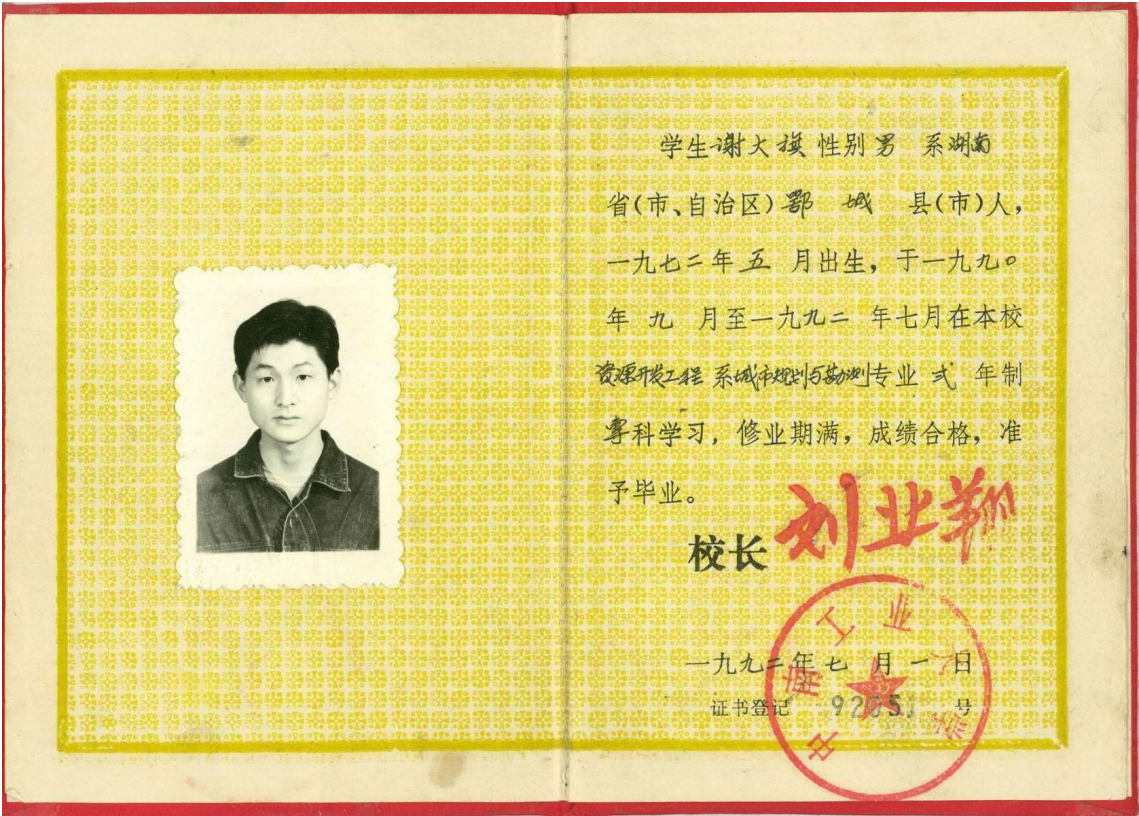 学生谢大旗 性别男 系湖南
省(市、自治区)鄂 城 县(市)人,
一九七二年五 月出生,于一九九〇
年 九 月至一九九二 年七月在本校
资源开发工程 系城市规划与勘测专业 弍 年制
专科学习,修业期满,成绩合格,准
予毕业。
校长 刘业翔
中南工业大学
一九九二年七 月一日
证书登记 号